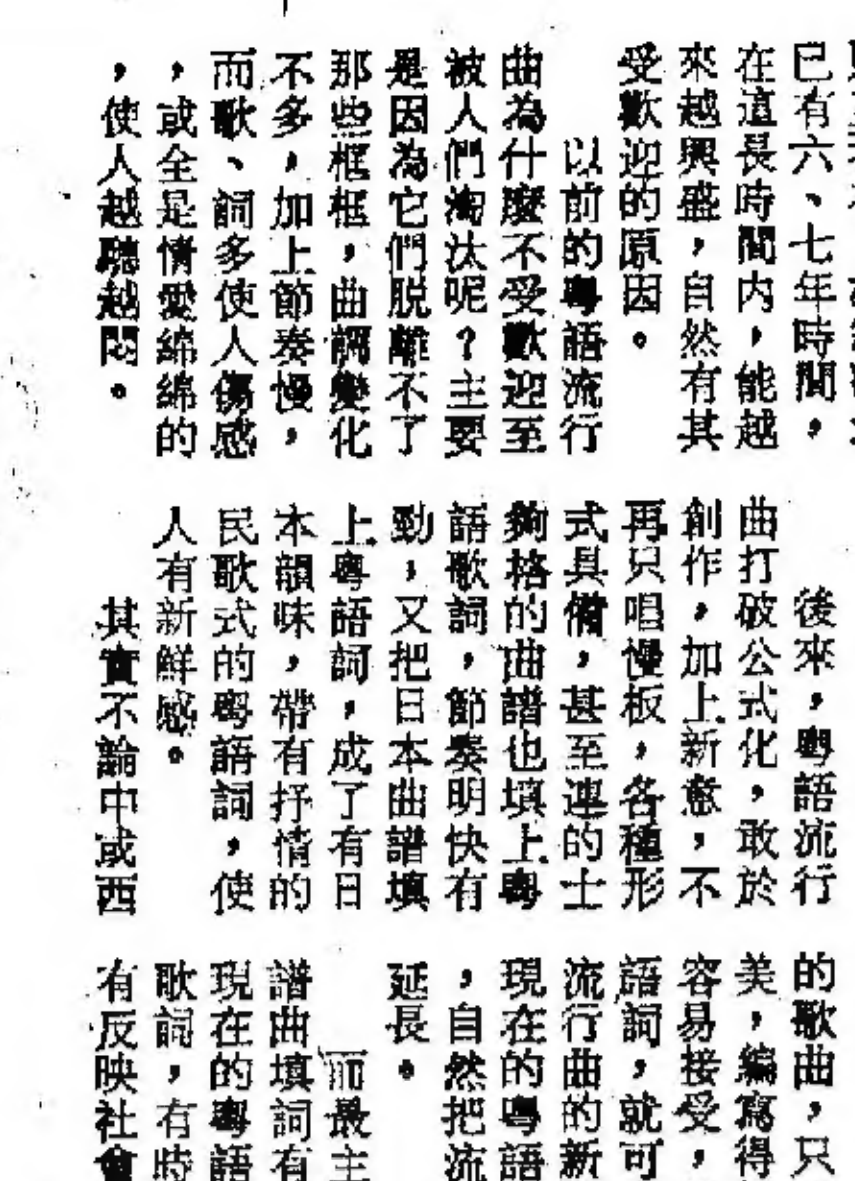 已有六、七年時間，
在這長時間内，能越
來越興盛，自然有其
受歡迎的原因。
以前的粵語流行
曲為什麼不受歡迎至
被人們淘汰呢？主要
是因為它們脱離不了
那些框框，曲調變化
不多，加上節奏慢，
而歌、詞多使人傷感
，或全是情愛綿綿的
，使人越聽越悶。
後來，粵語流行
曲打破公式化，敢於
創作，加上新意，不
再只唱慢板，各種形
式具備，甚至連的士
夠格的曲譜也填上粵
語歌詞，節奏明快有
勁，又把日本曲譜填
上粵語詞，成了有日
本韻味，帶有抒情的
民歌式的粵語詞，使
人有新鮮感。
其實不論中或西
的歌曲，只
美，編寫得
容易接受，
語詞，就可
流行曲的新
現在的粵語
，自然把流
延長。
而最主
譜曲填詞有
現在的粵語
歌詞，有時
有反映社會